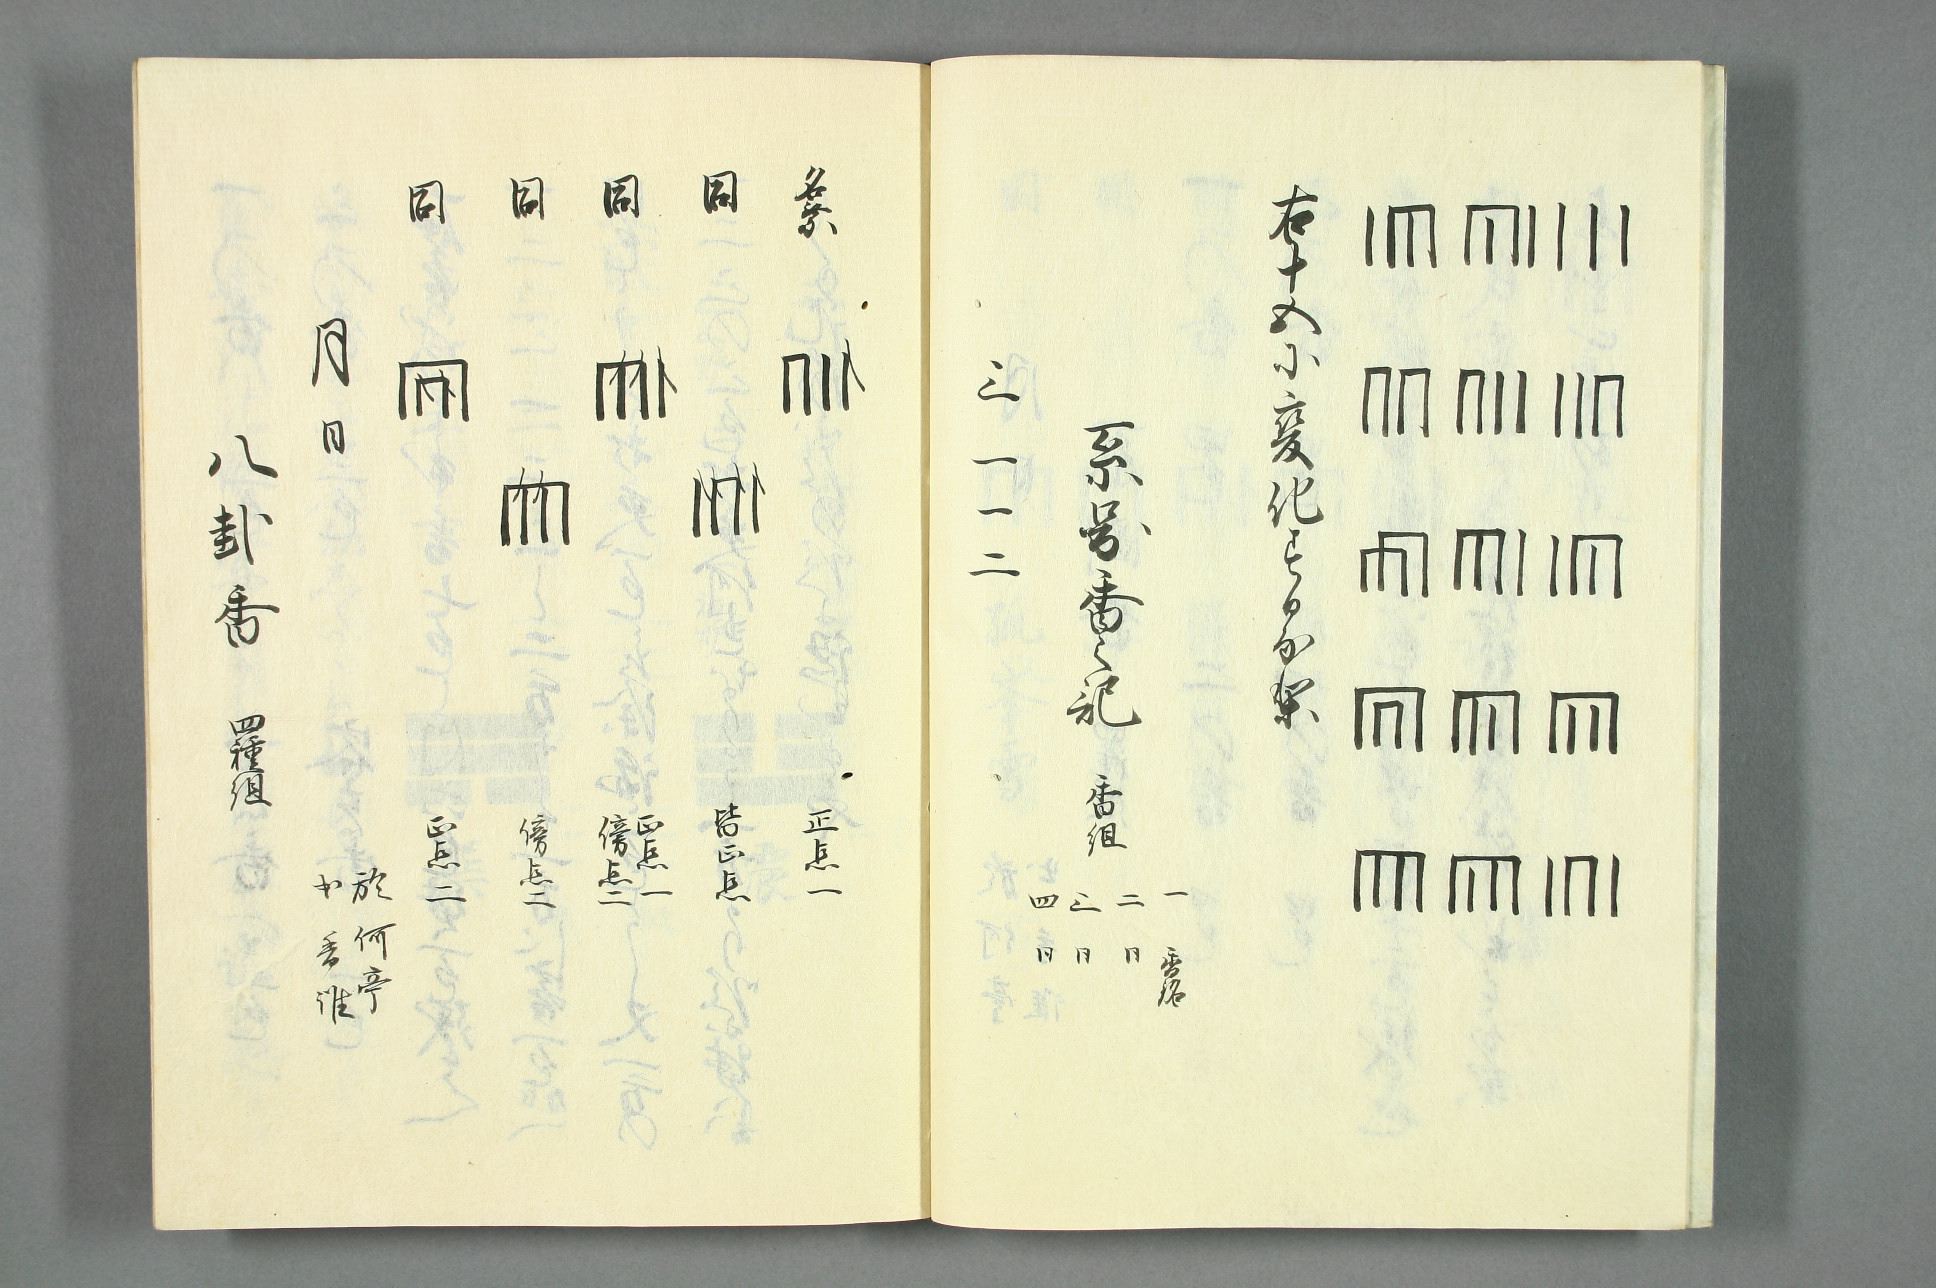 右十五に変化する
系図香之記
香組
一 香銘
二 同
三 同
四 同
三一一二
名
正点一
同
皆正点
同
正点一
傍点二
同
傍点二
同
正点二
月日
於何亭
香誰
八卦香 四種組